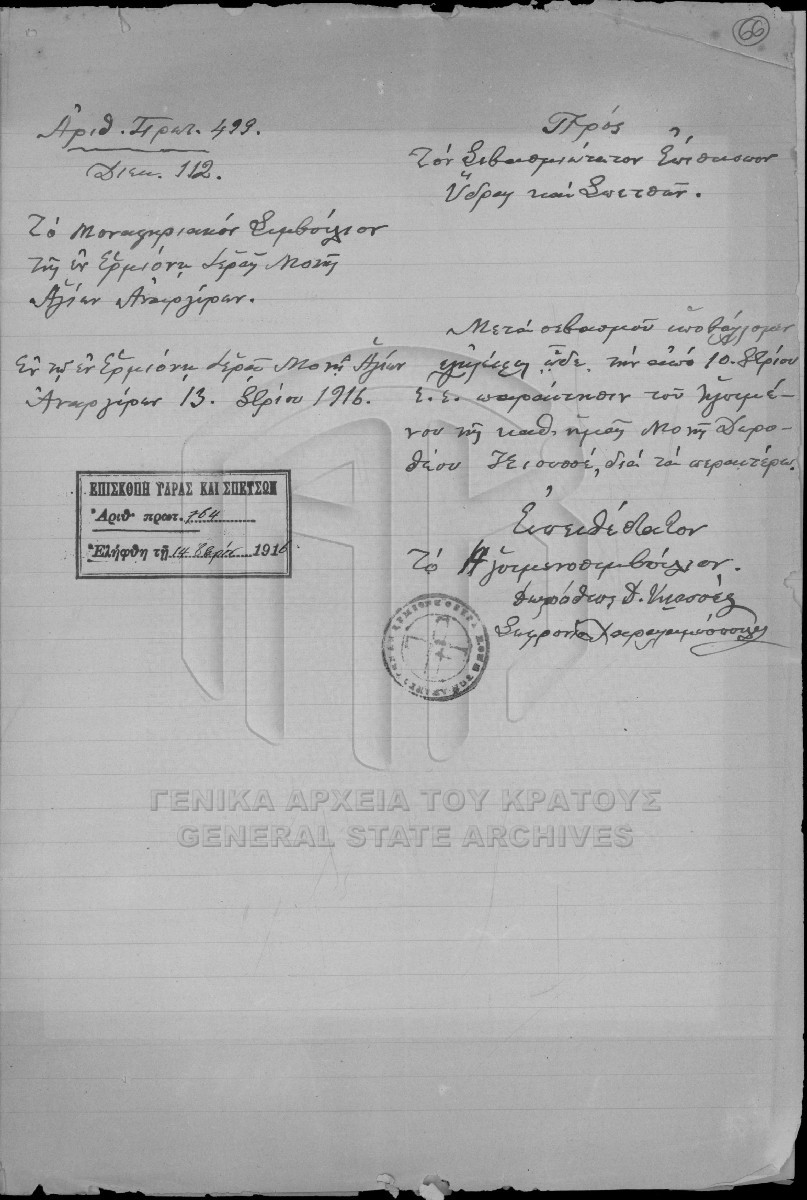 66
Ἀριθ. Πρωτ. 499.
Διεκ. 112.
Πρός
Τόν Σεβασμιώτατον Ἐπίσκοπον
Ὕδρας καί Σπετσῶν.
Τό Μοναστηριακόν Συμβούλιον
τῆς ἐν Ἑρμιόνῃ Ἱερᾶς Μονῆς
Ἁγίων Ἀναργύρων.
Ἐν τῇ ἐν Ἑρμιόνῃ Ἱερᾷ Μονῇ Ἁγίων
Ἀναργύρων 13. 7βρίου 1916.
Μετά σεβασμοῦ ὑποβάλλομεν
ὧδε τήν ἀπό 10. 7βρίου
Ε. Ε. παραίτησιν τοῦ Ἡγουμέ-
νου τῆς καθ' ἡμᾶς Μονῆς Δωρο-
θέου, διά τά περαιτέρω.
Εὐπειθέστατον
Τό Ἡγουμενοσυμβούλιον.
Δωρόθεος Δ.
Σωφρόνιος
ΕΠΙΣΚΟΠΗ ΥΔΡΑΣ ΚΑΙ ΣΠΕΤΣΩΝ
Ἀριθ. πρωτ. 764
Ἐλήφθη τῇ 14 7βρίου 1916
ΓΕΝΙΚΑ ΑΡΧΕΙΑ ΤΟΥ ΚΡΑΤΟΥΣ
GENERAL STATE ARCHIVES